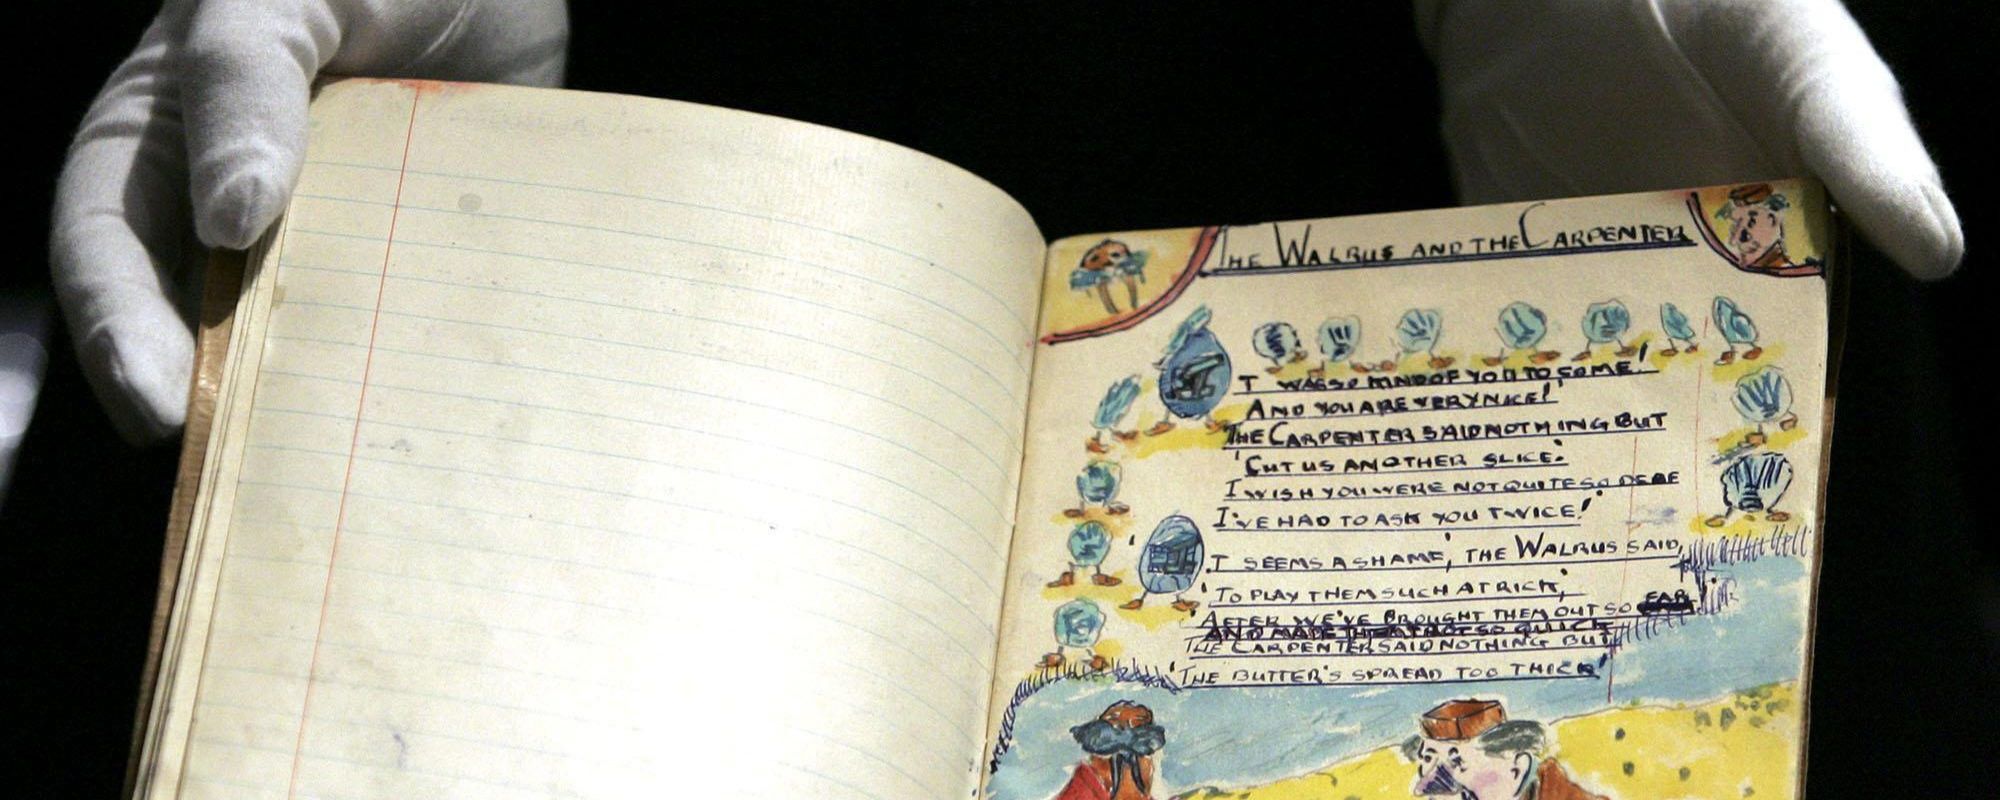 THE WALRUS AND THE CARPENTER
'I WAS SO KIND OF YOU TO COME!
AND YOU ARE VERY NICE!'
THE CARPENTER SAID NOTHING BUT
'CUT US ANOTHER SLICE.
I WISH YOU WERE NOT QUITE SO DEAE
I'VE HAD TO ASK YOU TWICE!'
'I SEEMS A SHAME', THE WALRUS SAID,
'TO PLAY THEM SUCH A TRICK,
AFTER WE'VE BROUGHT THEM OUT SO FAR
AND MADE THEM TROT SO QUICK
THE CARPENTER SAID NOTHING BUT
'THE BUTTER'S SPREAD TOO THICK'